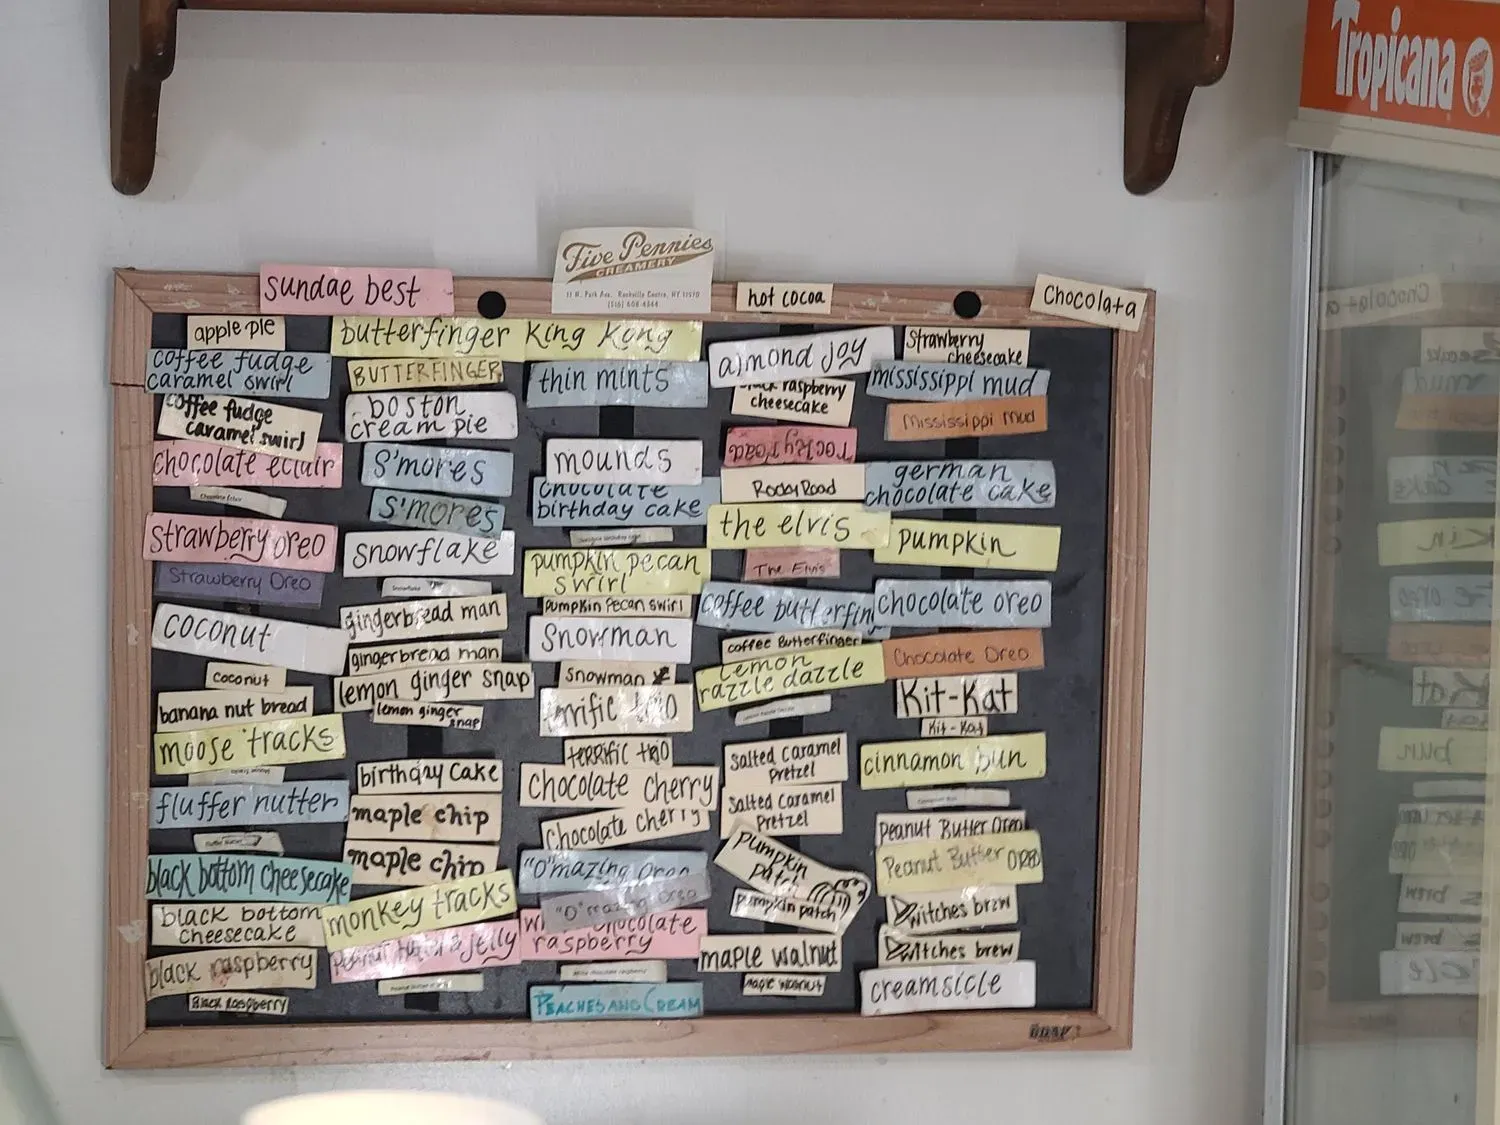 Tropicana
Five Pennies
CREAMERY
11 N. Park Ave. Rockville Centre, NY 11570
(516) 608-4344
sundae best
hot cocoa
Chocolata
apple pie
coffee fudge
caramel swirl
coffee fudge
caramel swirl
chocolate eclair
Chocolate Eclair
strawberry oreo
Strawberry Oreo
coconut
coconut
banana nut bread
moose tracks
Moose Tracks
fluffer nutter
Fluffer Nutter
black bottom cheesecake
black bottom
cheesecake
black raspberry
Black Raspberry
butterfinger
BUTTERFINGER
boston
cream pie
S'mores
S'mores
snowflake
Snowflake
gingerbread man
gingerbread man
lemon ginger snap
lemon ginger
snap
birthday Cake
maple chip
maple chip
monkey tracks
Peanut Butter & Jelly
King Kong
thin mints
mounds
chocolate
birthday cake
pumpkin pecan
swirl
Pumpkin Pecan Swirl
snowman
Snowman
terrific trio
terrific trio
Chocolate Cherry
Chocolate Cherry
"O"mazing Oreo
"O"mazing Oreo
white chocolate
raspberry
White chocolate raspberry
PEACHES AND CREAM
almond joy
black raspberry
cheesecake
rocky road
Rocky Road
the elvis
The Elvis
coffee butterfin
coffee Butterfinger
lemon
razzle dazzle
Salted Caramel
Pretzel
Salted Caramel
Pretzel
pumpkin
patch
pumpkin patch
maple walnut
maple walnut
Strawberry
cheesecake
mississippi mud
Mississippi Mud
german
chocolate cake
pumpkin
chocolate oreo
Chocolate Oreo
Kit-Kat
Kit-Kat
cinnamon bun
Peanut Butter Oreo
Peanut Butter OREO
witches brew
witches brew
creamsicle